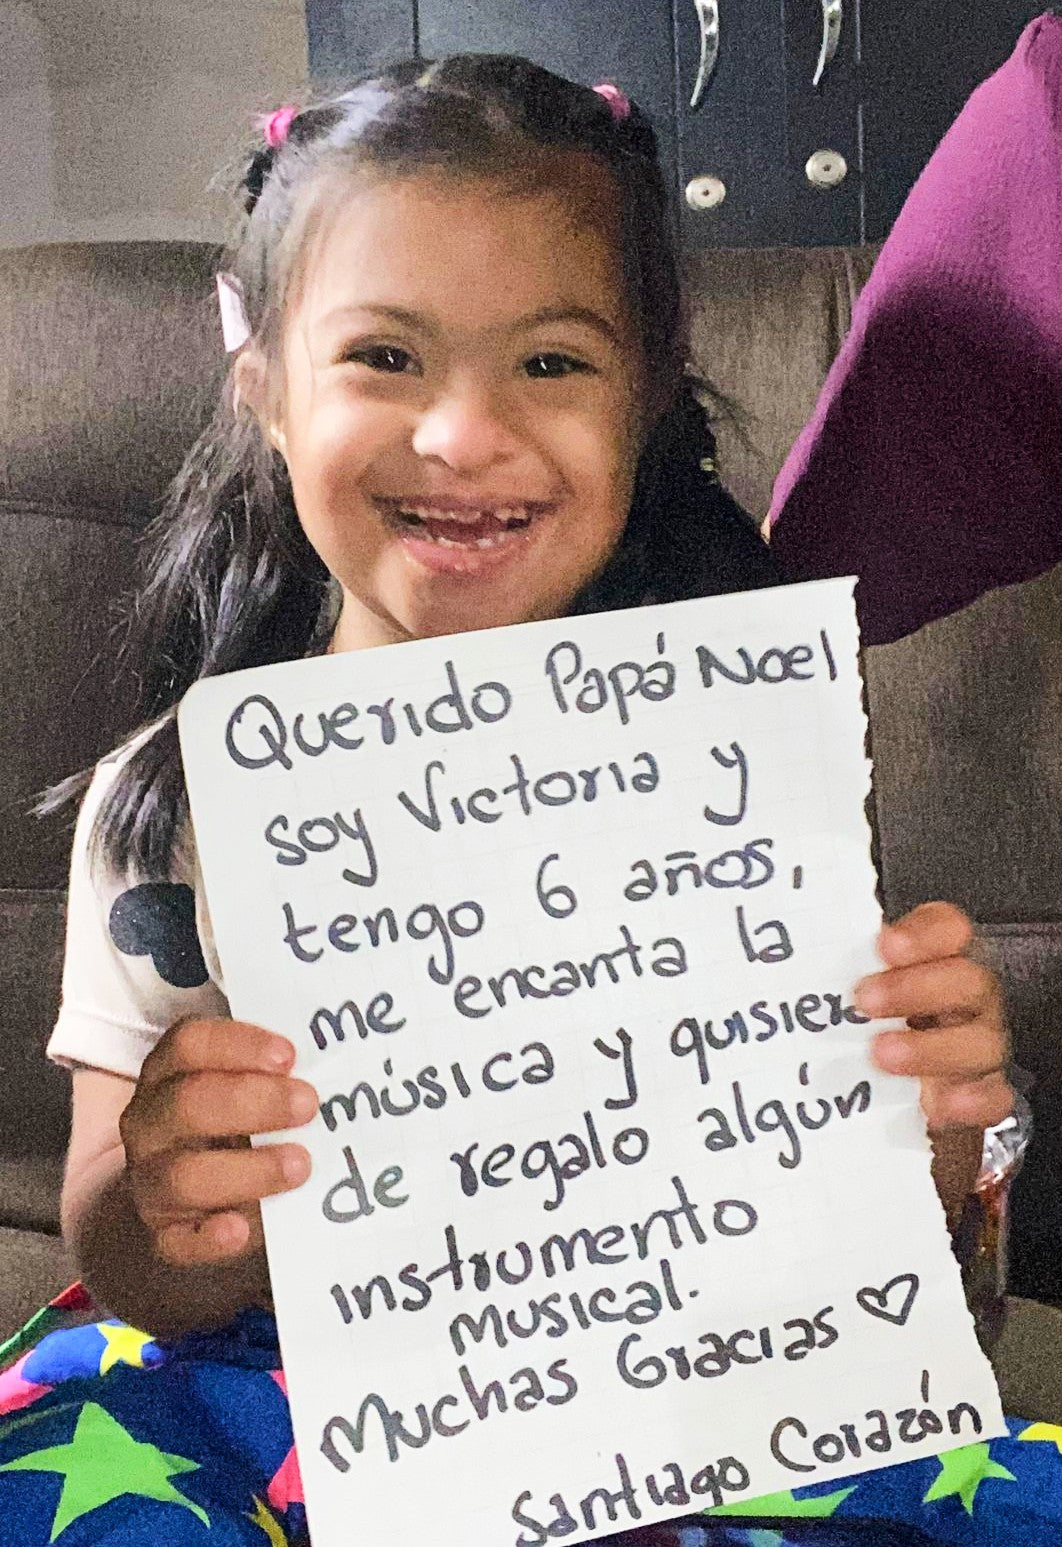 Querido Papá Noel
soy Victoria y
tengo 6 años,
me encanta la
música y quisiera
de regalo algún
instrumento
musical.
Muchas Gracias ♡
Santiago Corazón